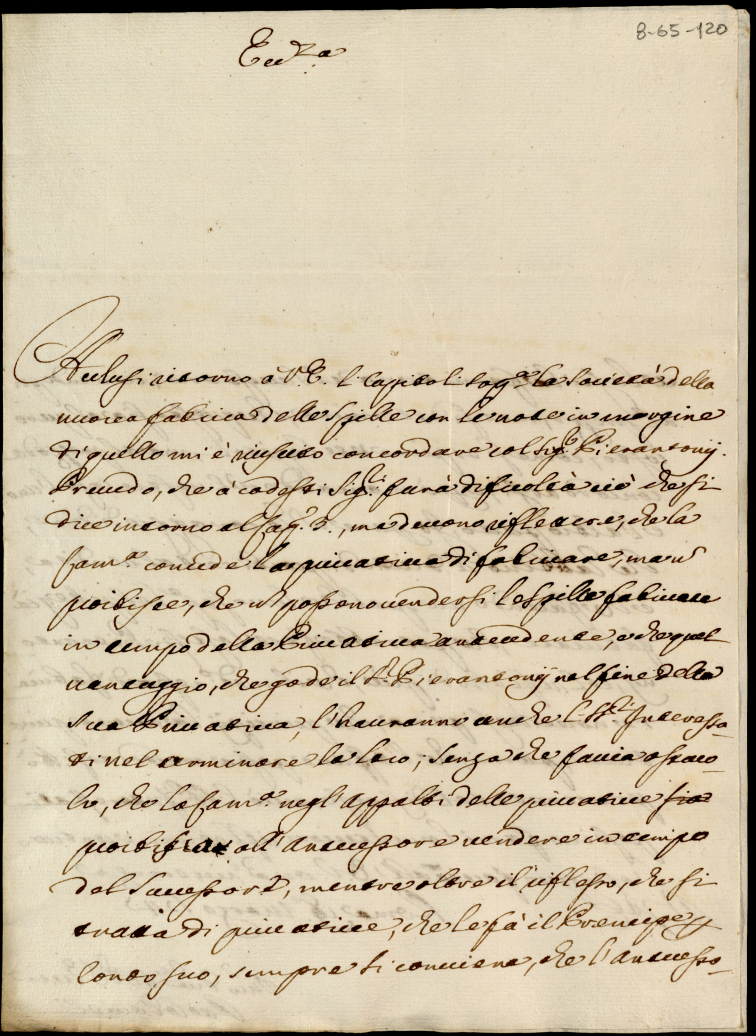 8-65-120
Ecc.za
Acclusi ritorno à V.E. li Capitoli sop.a la Società della
nuova fabrica delle Spille con le note in margine
di quello mi è riuscito concordare col Sig.r Pierantonij.
Preuedo, che à codesti Sig.ri farà dificoltà ciò che si
dice intorno al Cap.o 3., ma deuono riflettere, che la
Cam.a concede la priuatiua di fabricare, ma n̄
proibisce, che n̄ possono uendersi le Spille fabricate
in tempo della Priuatiua antecedente, e che quel
uantaggio, che gode il S.r Pierantonij nel fine della
sua Priuatiua, l'hauranno anche li SS.ri Interessa-
ti nel terminare la loro; senza che faccia ostaco-
lo, che la Cam.a negl'Appalti delle priuatiue sia
proibisca all'Antecessore uendere in tempo
del Successore, mentre oltre il riflesso, che si
tratta di priuatiue, che le fà il Prencipe p
conto suo, sempre si conuiene, che l'Antecesso-